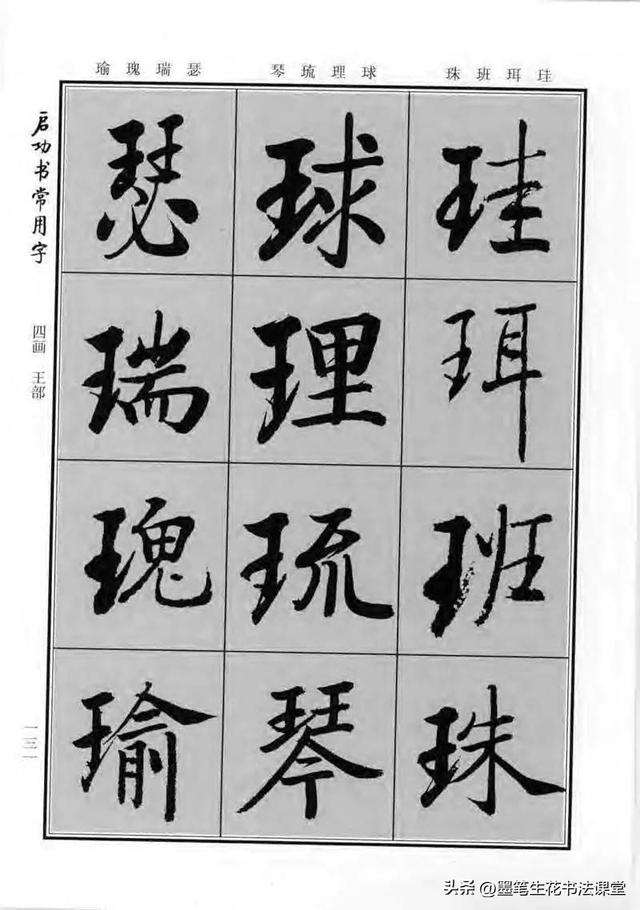 珪珥班珠
球理琉琴
瑟瑞瑰瑜
珪珥班珠
球理琉琴
瑟瑞瑰瑜
启功书常用字
四画 王部
一三一
头条 @墨笔生花书法课堂